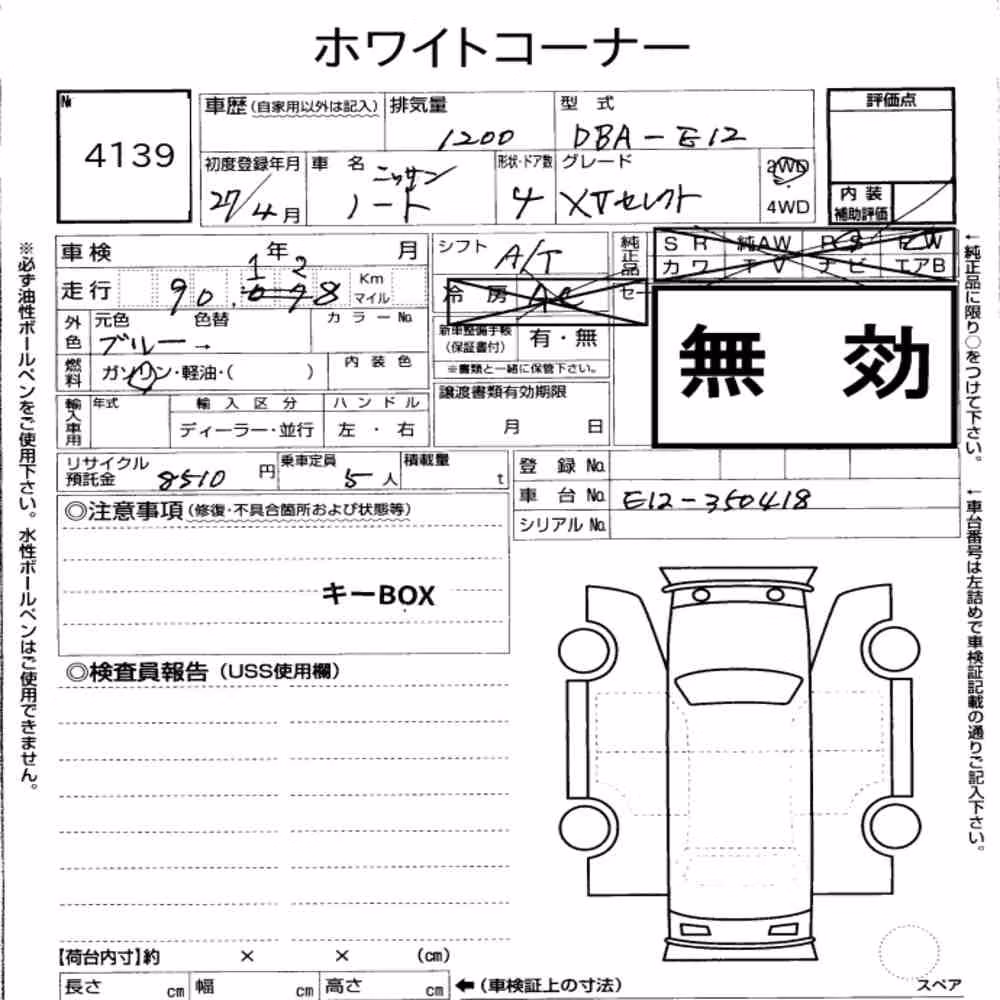 ホワイトコーナー
№ 4139
車歴(自家用以外は記入) 排気量 1200 型 式 DBA-E12
初度登録年月 27/4月 車 名 ニッサン ノート 形状・ドア数 4 グレード XVセレクト 2WD 4WD
評価点
内 装 補助評価
車検 年 月
走行 90, Km マイル
1 2
シフト A/T
冷 房 AC
純正品 セー
S R 純AW P S P W
カ ワ T V ナ ビ エアB
外色 元色 ブルー→ 色替 カラーNo.
燃料 ガソリン・軽油・( ) 内 装 色
新車整備手帳(保証書付) 有・無
※書類と一緒に保管下さい。
無 効
輸入車用 年式 輸 入 区 分 ディーラー・並行 ハ ン ド ル 左 ・ 右
譲渡書類有効期限
月 日
リサイクル預託金 8510 円 乗車定員 5 人 積載量 t
登 録 No.
車 台 No. E12-350418
シリアル No.
◎注意事項(修復・不具合箇所および状態等)
キーBOX
◎検査員報告(USS使用欄)
【荷台内寸】約 × × (cm)
長さ cm 幅 cm 高さ cm ←(車検証上の寸法)
スペア
※必ず油性ボールペンをご使用下さい。水性ボールペンはご使用できません。
←純正品に限り○をつけて下さい。
←車台番号は左詰めで車検証記載の通りご記入下さい。